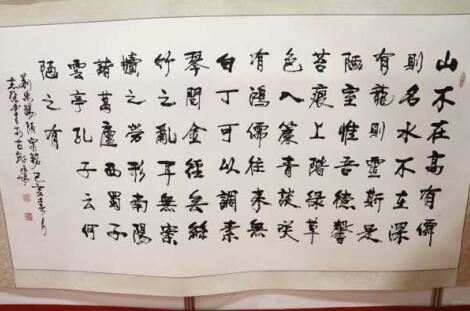 山不在高有僊
則名水不在深
有龍則靈斯是
陋室惟吾德馨
苔痕上階綠草
色入簾青談咲
有鴻儒往來無
白丁可以調素
琴閱金經無絲
竹之亂耳無案
牘之勞形南陽
諸葛廬西蜀子
雲亭孔子云何
陋之有
劉禹錫陋室銘己亥春月
書於古